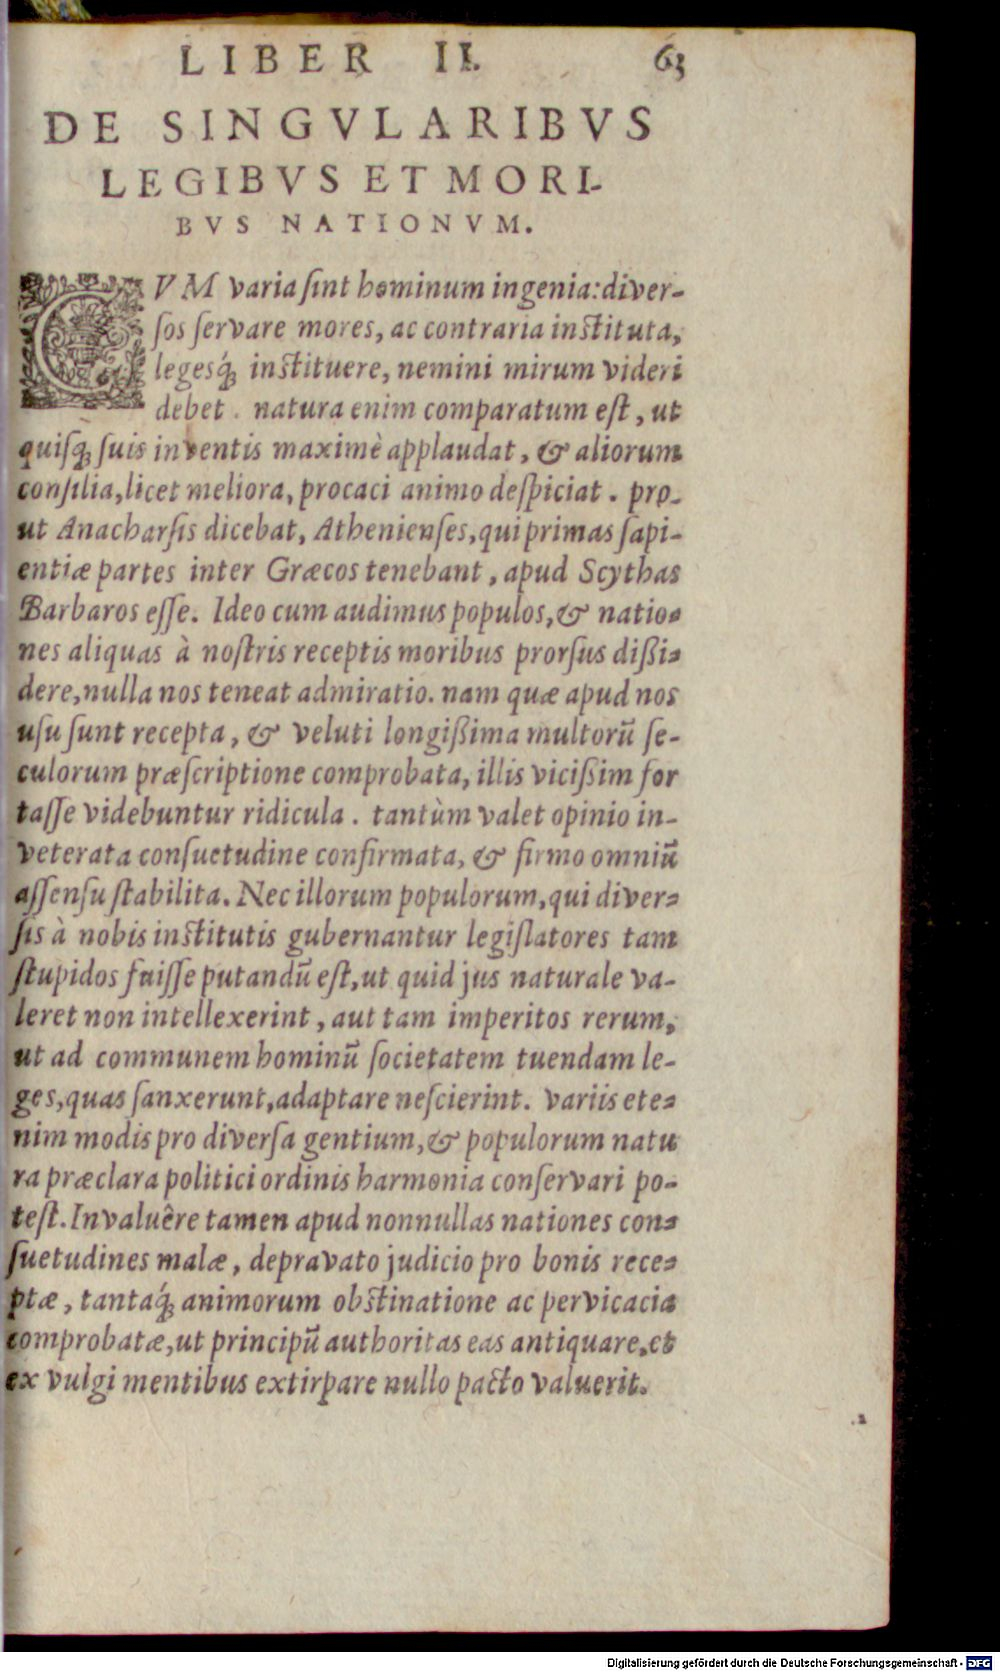 LIBER II. 63
DE SINGVLARIBVS
LEGIBVS ET MORI-
BVS NATIONVM.
CVM varia ſint hominum ingenia: diver-
ſos ſervare mores, ac contraria inſtituta,
legesq́; inſtituere, nemini mirum videri
debet. natura enim comparatum eſt, ut
quiſq; ſuis inventis maximè applaudat, & aliorum
conſilia, licet meliora, procaci animo deſpiciat. pro-
ut Anacharſis dicebat, Athenienſes, qui primas ſapi-
entiæ partes inter Græcos tenebant, apud Scythas
Barbaros eſſe. Ideo cum audimus populos, & natio-
nes aliquas à noſtris receptis moribus prorſus dißi-
dere, nulla nos teneat admiratio. nam quæ apud nos
uſu ſunt recepta, & veluti longißima multorũ ſe-
culorum præſcriptione comprobata, illis vicißim for
taſſe videbuntur ridicula. tantùm valet opinio in-
veterata conſuetudine confirmata, & firmo omniũ
aſſenſu ſtabilita. Nec illorum populorum, qui diver-
ſis à nobis inſtitutis gubernantur legiſlatores tam
ſtupidos fuiſſe putandũ eſt, ut quid jus naturale va-
leret non intellexerint, aut tam imperitos rerum,
ut ad communem hominũ ſocietatem tuendam le-
ges, quas ſanxerunt, adaptare neſcierint. variis ete-
nim modis pro diverſa gentium, & populorum natu
ra præclara politici ordinis harmonia conſervari po-
teſt. Invaluêre tamen apud nonnullas nationes con-
ſuetudines malæ, depravato judicio pro bonis rece-
ptæ, tantaq́; animorum obſtinatione ac pervicacia
comprobatæ, ut principũ authoritas eas antiquare, et
ex vulgi mentibus extirpare nullo pacto valuerit.
Digitalisierung gefördert durch die Deutsche Forschungsgemeinschaft - DFG